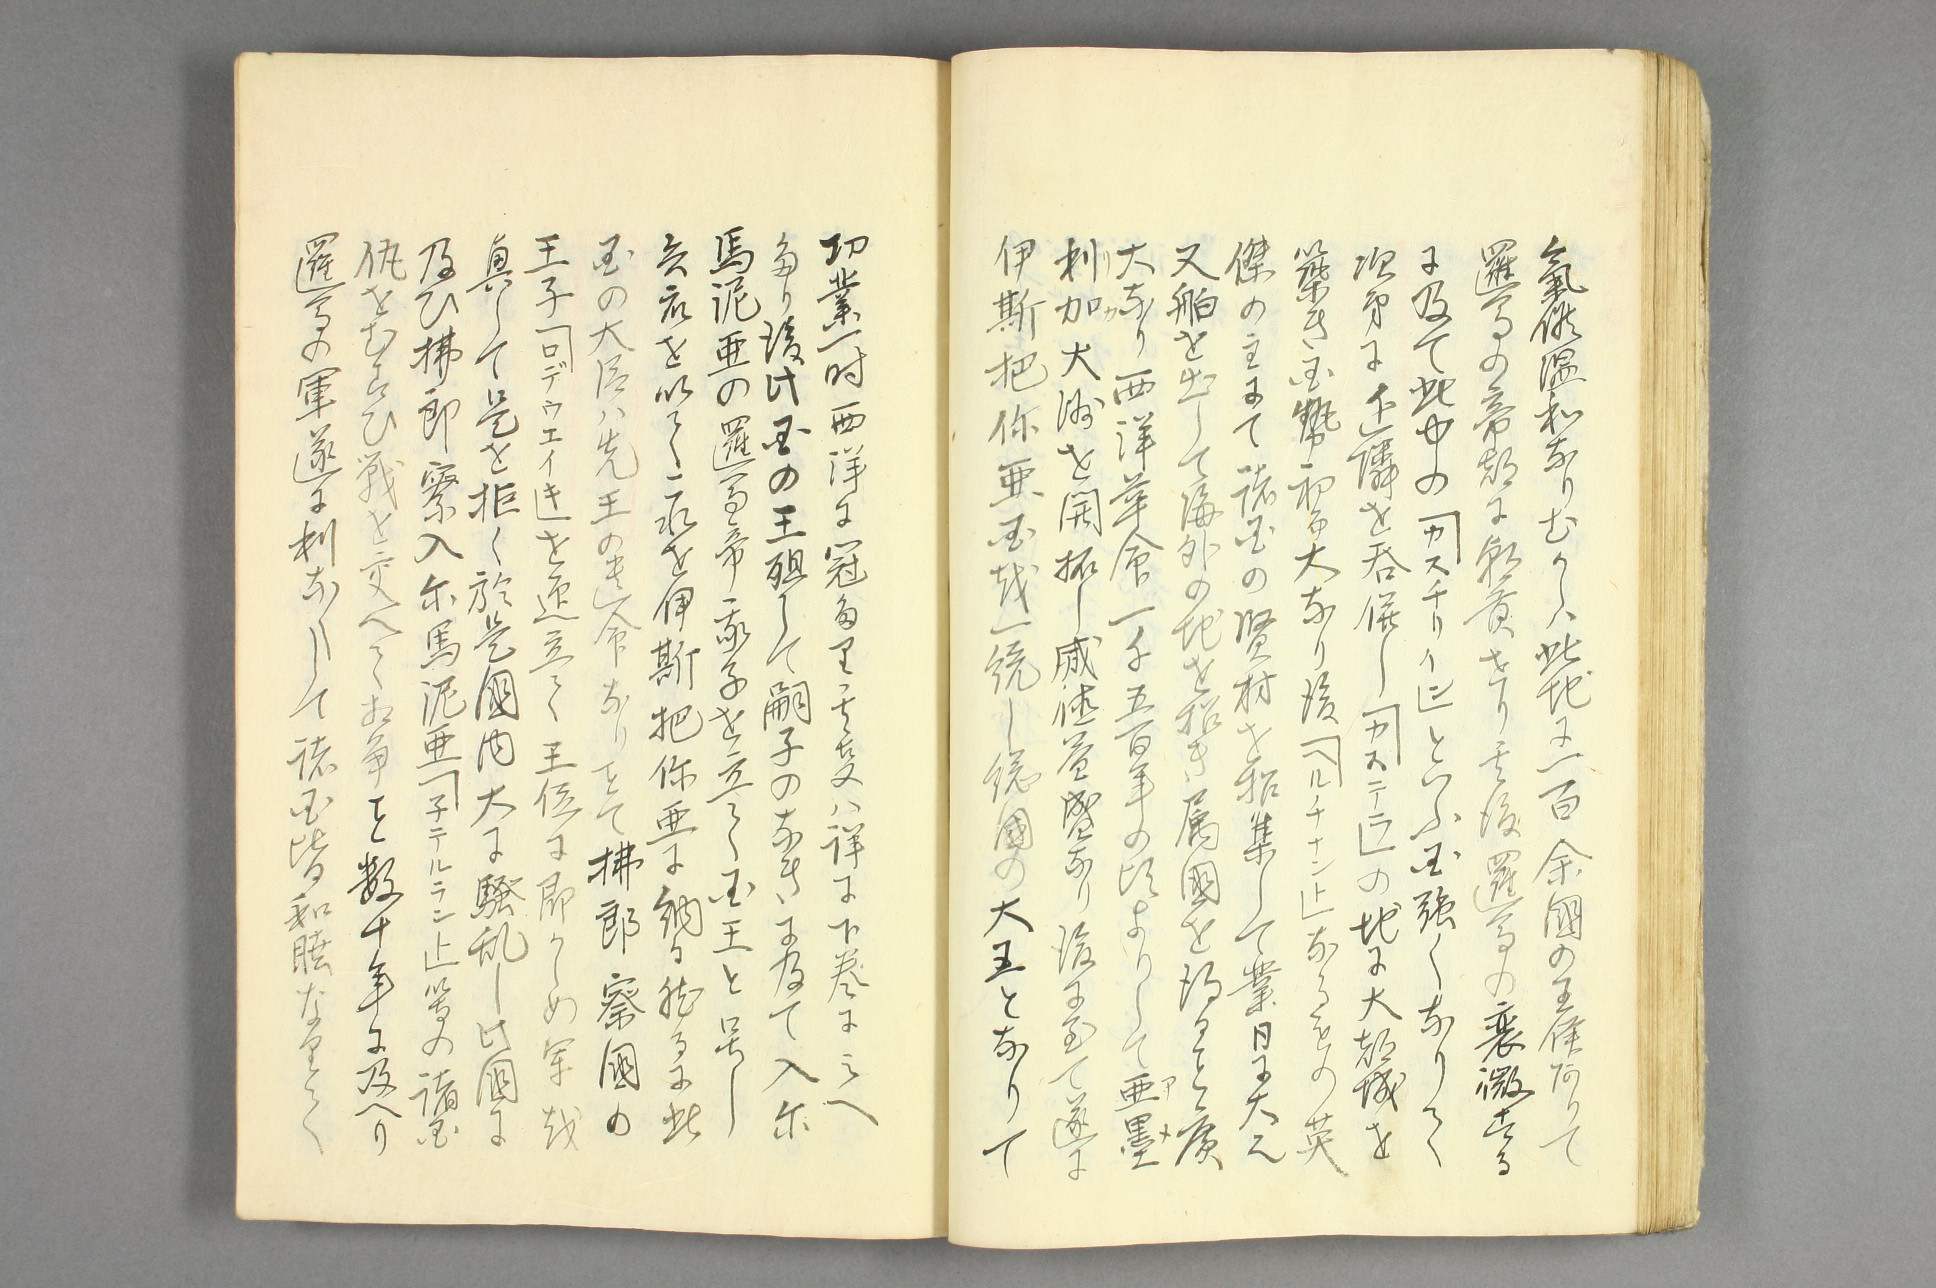 氣候温和なりむかしハ此地に一百余國の王侯ありて
羅馬の帝都に朝貢せり其後羅馬の衰微する
に及て此中の「カスチリイ」といふ国強くなりて
次第に近隣を呑併し「カステラ」の地に大都城を
築き国勢初て大なり後「ヘルヂナンド」なるものゝ英
傑の主にて諸国の賢材を招集して業日に大に
又舶を出して海外の地を招き属國を得ること廣
大なり西洋革命一千五百年の頃よりして亜墨
利加大洲を開拓し威徳益盛なり後に至て遂に
伊斯把你亜国を一統し総國の大王となりて
功業一時西洋に冠たり其支ハ詳に下巻にみへ
たり後此国の王殂して嗣子のなきに及て入尔
馬泥亜の羅馬帝二男子を立て国王と号し
兵衆を以てこれを伊斯把你亜に納る然るに此
国の大臣ハ先王の遺命なりとて拂郎察國の
王子「ロデウエイキ」を迎立て王位に即かしめ軍を
興して是を拒く於是國内大に騒乱し此國に
及ひ拂郎察入尔馬泥亜「子デルランド」等の諸国
仇をむすひ戦を交へて相争こと数十年に及へり
羅馬の軍遂に利なふして諸国皆和睦なりて